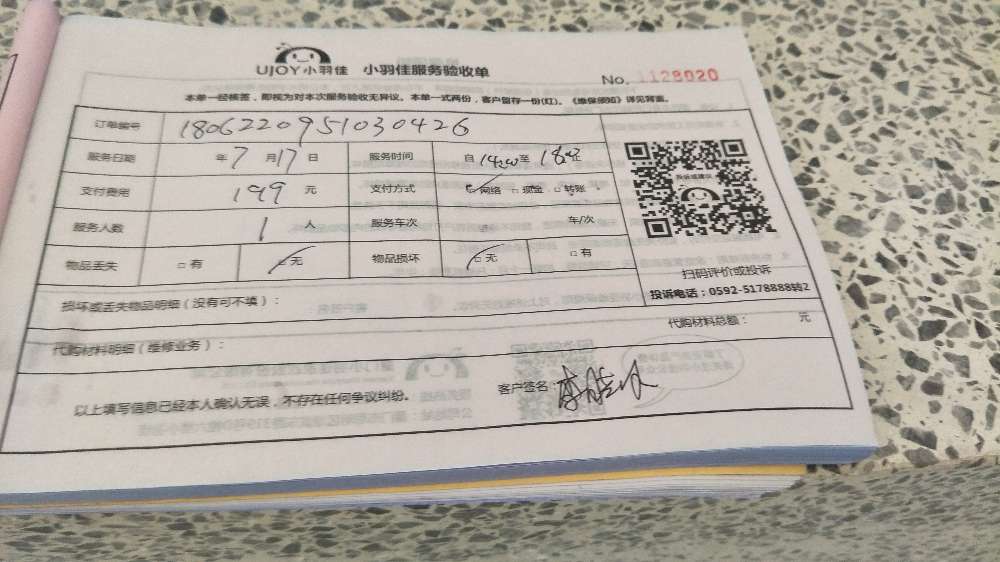 UJOY小羽佳 小羽佳服务验收单
No. 1128020
本单一经核签，即视为对本次服务验收无异议。本单一式两份，客户留存一份(红)。《维保须知》详见背面。
订单编号 1806220951030426
服务日期 年7月17日 服务时间 自14:00至18:00止
支付费用 199元 支付方式 □网络 □现金 □转账
服务人数 1人 服务车次 车/次
物品丢失 □有 □无 物品损坏 □无 □有
投诉或建议
扫码评价或投诉
投诉电话：0592-5178888转2
损坏或丢失物品明细（没有可不填）：
代购材料明细（维修业务）：
代购材料总额： 元
以上填写信息已经本人确认无误，不存在任何争议纠纷。
客户签名: